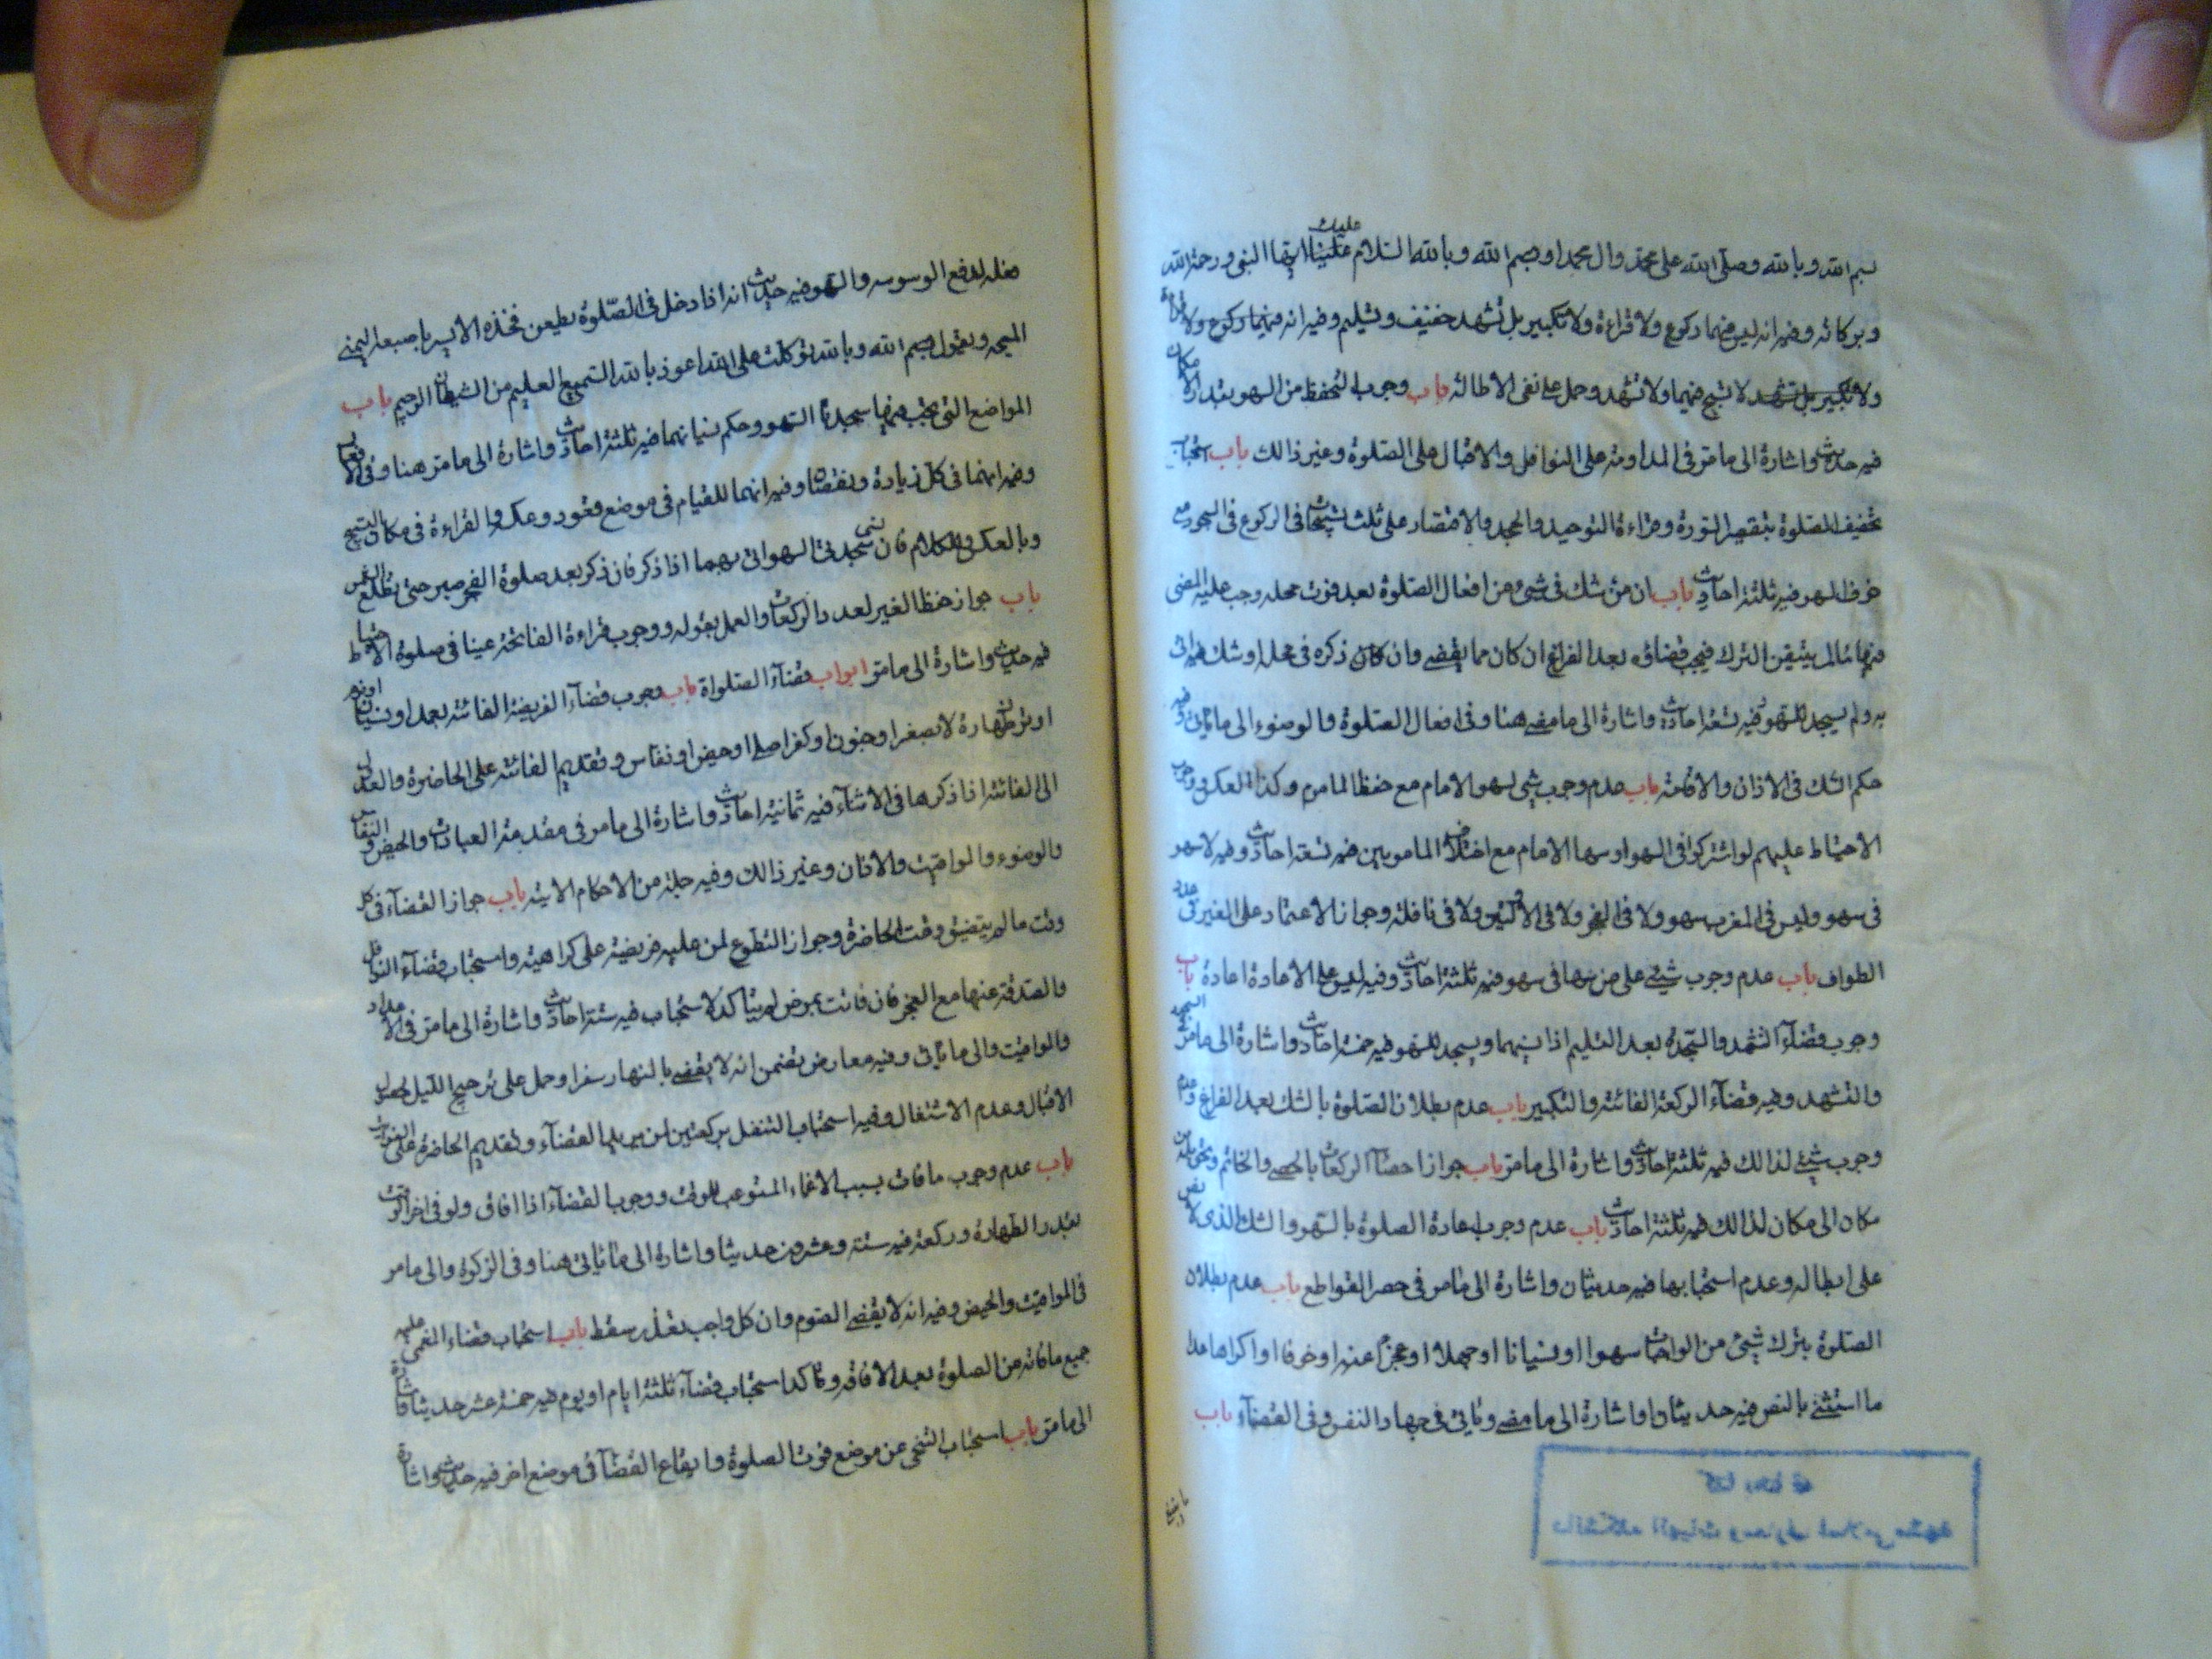 بسم الله وبالله وصلى الله على محمد وال محمد او بسم الله وبالله السلام عليك ايها النبى ورحمة الله
وبركاته وفيه انه ليس فيهما ركوع ولا قراءة ولا تكبير بل تشهد خفيف وتسليم وفيه انه فيهما ركوع ولا قراءة
ولا تكبير بل تشهد لا تسبيح فيهما ولا تشهد وحمل على نفى الاطالة باب وجوب التحفظ من السهو بقدر الامكان
فيه حديث واشارة الى ما مر فى المداومة على النوافل والاقبال على الصلوة وغير ذالك باب استحباب
تخفيف الصلوة بتقصير السورة وقراءة التوحيد والجحد والاقتصار على ثلث تسبيحات فى الركوع فى السجود مع
خوف السهو فيه ثلثة احاديث باب ان من شك فى شئ من افعال الصلوة بعد فوت محله وجب عليه المضى
فيها مالم يتيقن الترك فيجب قضاؤه بعد الفراغ ان كان مما يقضى وان كان ذكره فى محله او شك فيه اتى
به ولم يسجد للسهو فيه تسعة احاديث واشارة الى ما مضى هنا وفى افعال الصلوة والوضوء والى ما ياتى وفيه
حكم الشك فى الاذان والاقامة باب عدم وجوب شئ لسهو الامام مع حفظ الماموم وكذا العكس ووجوب
الاحتياط عليهم لو اشتركوا فى السهو او سها الامام مع اختلاف المامومين فيه تسعة احاديث وفيه لا سهو
فى سهو وليس فى المغرب سهو ولا فى الفجر ولا فى الاولتين ولا فى نافلة وجواز الاعتماد على الغير فى عدد
الطواف باب عدم وجوب شئ على من سها فى سهو فيه ثلثة احاديث وفيه ليس على الاعادة اعادة باب
وجوب قضاء التشهد والسجدة بعد التسليم اذا نسيهما ويسجد للسهو فيه خمسة احاديث واشارة الى ما مر فى السجود
والتشهد وفيه قضاء الركعة الفائتة والتكبير باب عدم بطلان الصلوة بالشك بعد الفراغ وعدم
وجوب شئ لذالك فيه ثلثة احاديث واشارة الى ما مر باب جواز احصاء الركعات بالحصى والخاتم وتحويله من
مكان الى مكان لذالك فيه ثلثة احاديث باب عدم وجوب اعادة الصلوة بالسهو والشك الذى لا نص
على ابطاله وعدم استحبابها فيه حديثان واشارة الى ما مر فى حصر القواطع باب عدم بطلان
الصلوة بترك شئ من الواجبات سهوا او نسيانا او جهلا او عجزا عنه او خوفا او اكراها عدا
ما استثنى بالنص فيه حديثان واشارة الى ما مضى وياتى فى جهاد النفس وفى القضاء باب
كتابخانه
دانشكده الهيات ومعارف اسلامى مشهد
فعله لدفع الوسوسه والسهو فيه حديث انه اذا دخل فى الصلوة يطعن فخذه الايسر باصبعه اليمنى
المسبحه ويقول بسم الله وبالله توكلت على الله اعوذ بالله السميع العليم من الشيطان الرجيم باب
المواضع التى يجب فيها سجدتا السهو وحكم نسيانهما فيه ثلثة احاديث واشارة الى ما مر هنا وفى الافعال
وفيه انهما فى كل زيادة ونقصان وفيه انهما للقيام فى موضع قعود وعكسه والقراءة فى مكان التسبيح
وبالعكس والكلام فان نسى سجدتى السهو اتى بهما اذا ذكر فان ذكر بعد صلوة الفجر صبر حتى تطلع الشمس
باب جواز حفظ الغير لعدد الركعات والعمل بقوله ووجوب قراءة الفاتحة عينا فى صلوة الاحتياط
فيه حديث واشارة الى ما مر ابواب قضاء الصلواة باب وجوب قضاء الفريضة الفائتة بعمد او نسيان او نوم
او ترك طهارة لا بصغر او جنون او كفر اصلى او حيض او نفاس وتقديم الفائتة على الحاضرة والعدول
الى الفائتة اذا ذكرها فى الاثناء فيه ثمانية احاديث واشارة الى ما مر فى مقدمة العبادات والحيض والنفاس
والوضوء والمواقيت والاذان وغير ذالك وفيه جملة من الاحكام الاتية باب جواز القضاء فى كل
وقت مالم يتضيق وقت الحاضرة وجواز التطوع لمن عليه فريضة على كراهية واستحباب قضاء النوافل
والصدقة عنها مع العجز فان فاتت بمرض لم يتاكد الاستحباب فيه ستة احاديث واشارة الى ما مر فى الاعداد
والمواقيت والى ما ياتى وفيه معارض تضمن انه لا يقضى بالنهار سفرا وحمل على ترجيح الليل لحصول
الاقبال وعدم الاشتغال وفيه استحباب التنفل بركعتين لمن يريد القضاء وتقديم الحاضرة على الفوايت
باب عدم وجوب ما فات بسبب الاغماء المستوعب للوقت ووجوب القضاء اذا افاق ولو فى اخر الوقت
بقدر الطهارة وركعة فيه ستة وعشرون حديثا واشارة الى ما ياتى هنا وفى الزكوة والى ما مر
فى المواقيت والحيض وفيه انه لا يقضى الصوم وان كل واجب تعذر سقط باب استحباب قضاء المغمى عليه
جميع ما فاته من الصلوة بعد الافاقة وتاكد استحباب قضاء ثلثة ايام او يوم فيه خمسة عشر حديثا واشارة
الى ما مر باب استحباب التنحى عن موضع فوت الصلوة وايقاع القضاء فى موضع اخر فيه حديث واشارة